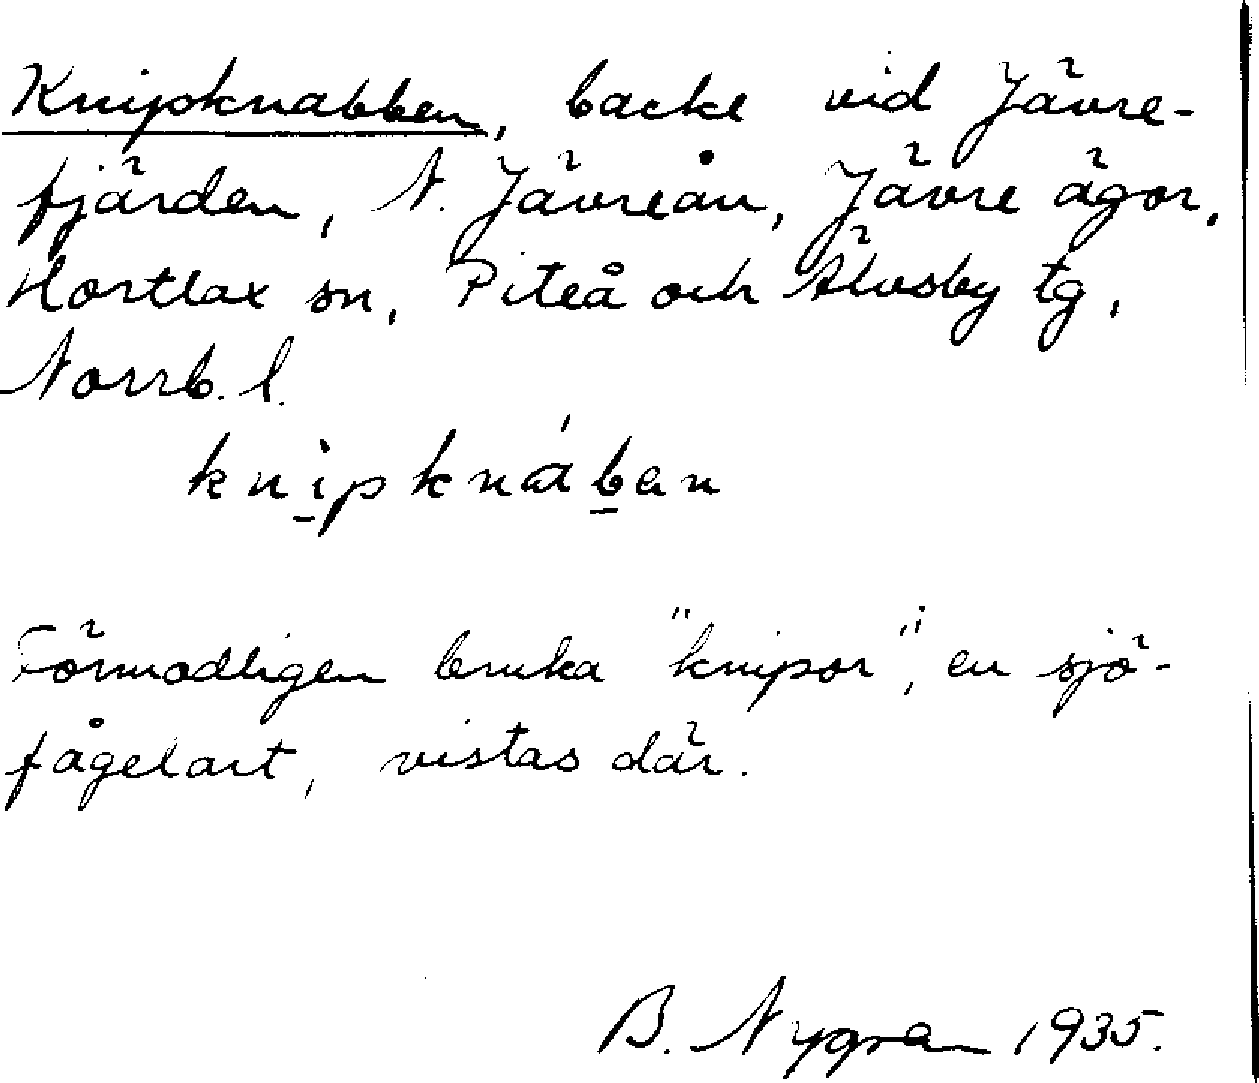 Knipknabben, backe vid Jävre-
fjärden, N. Jävreån, Jävre ägor,
Hortlax sn, Piteå och Älvsby tg,
Norrb. l.
knipknában
Förmodligen bruka "knipor", en sjö-
fågelart, vistas där.
B. Nygren 1935.